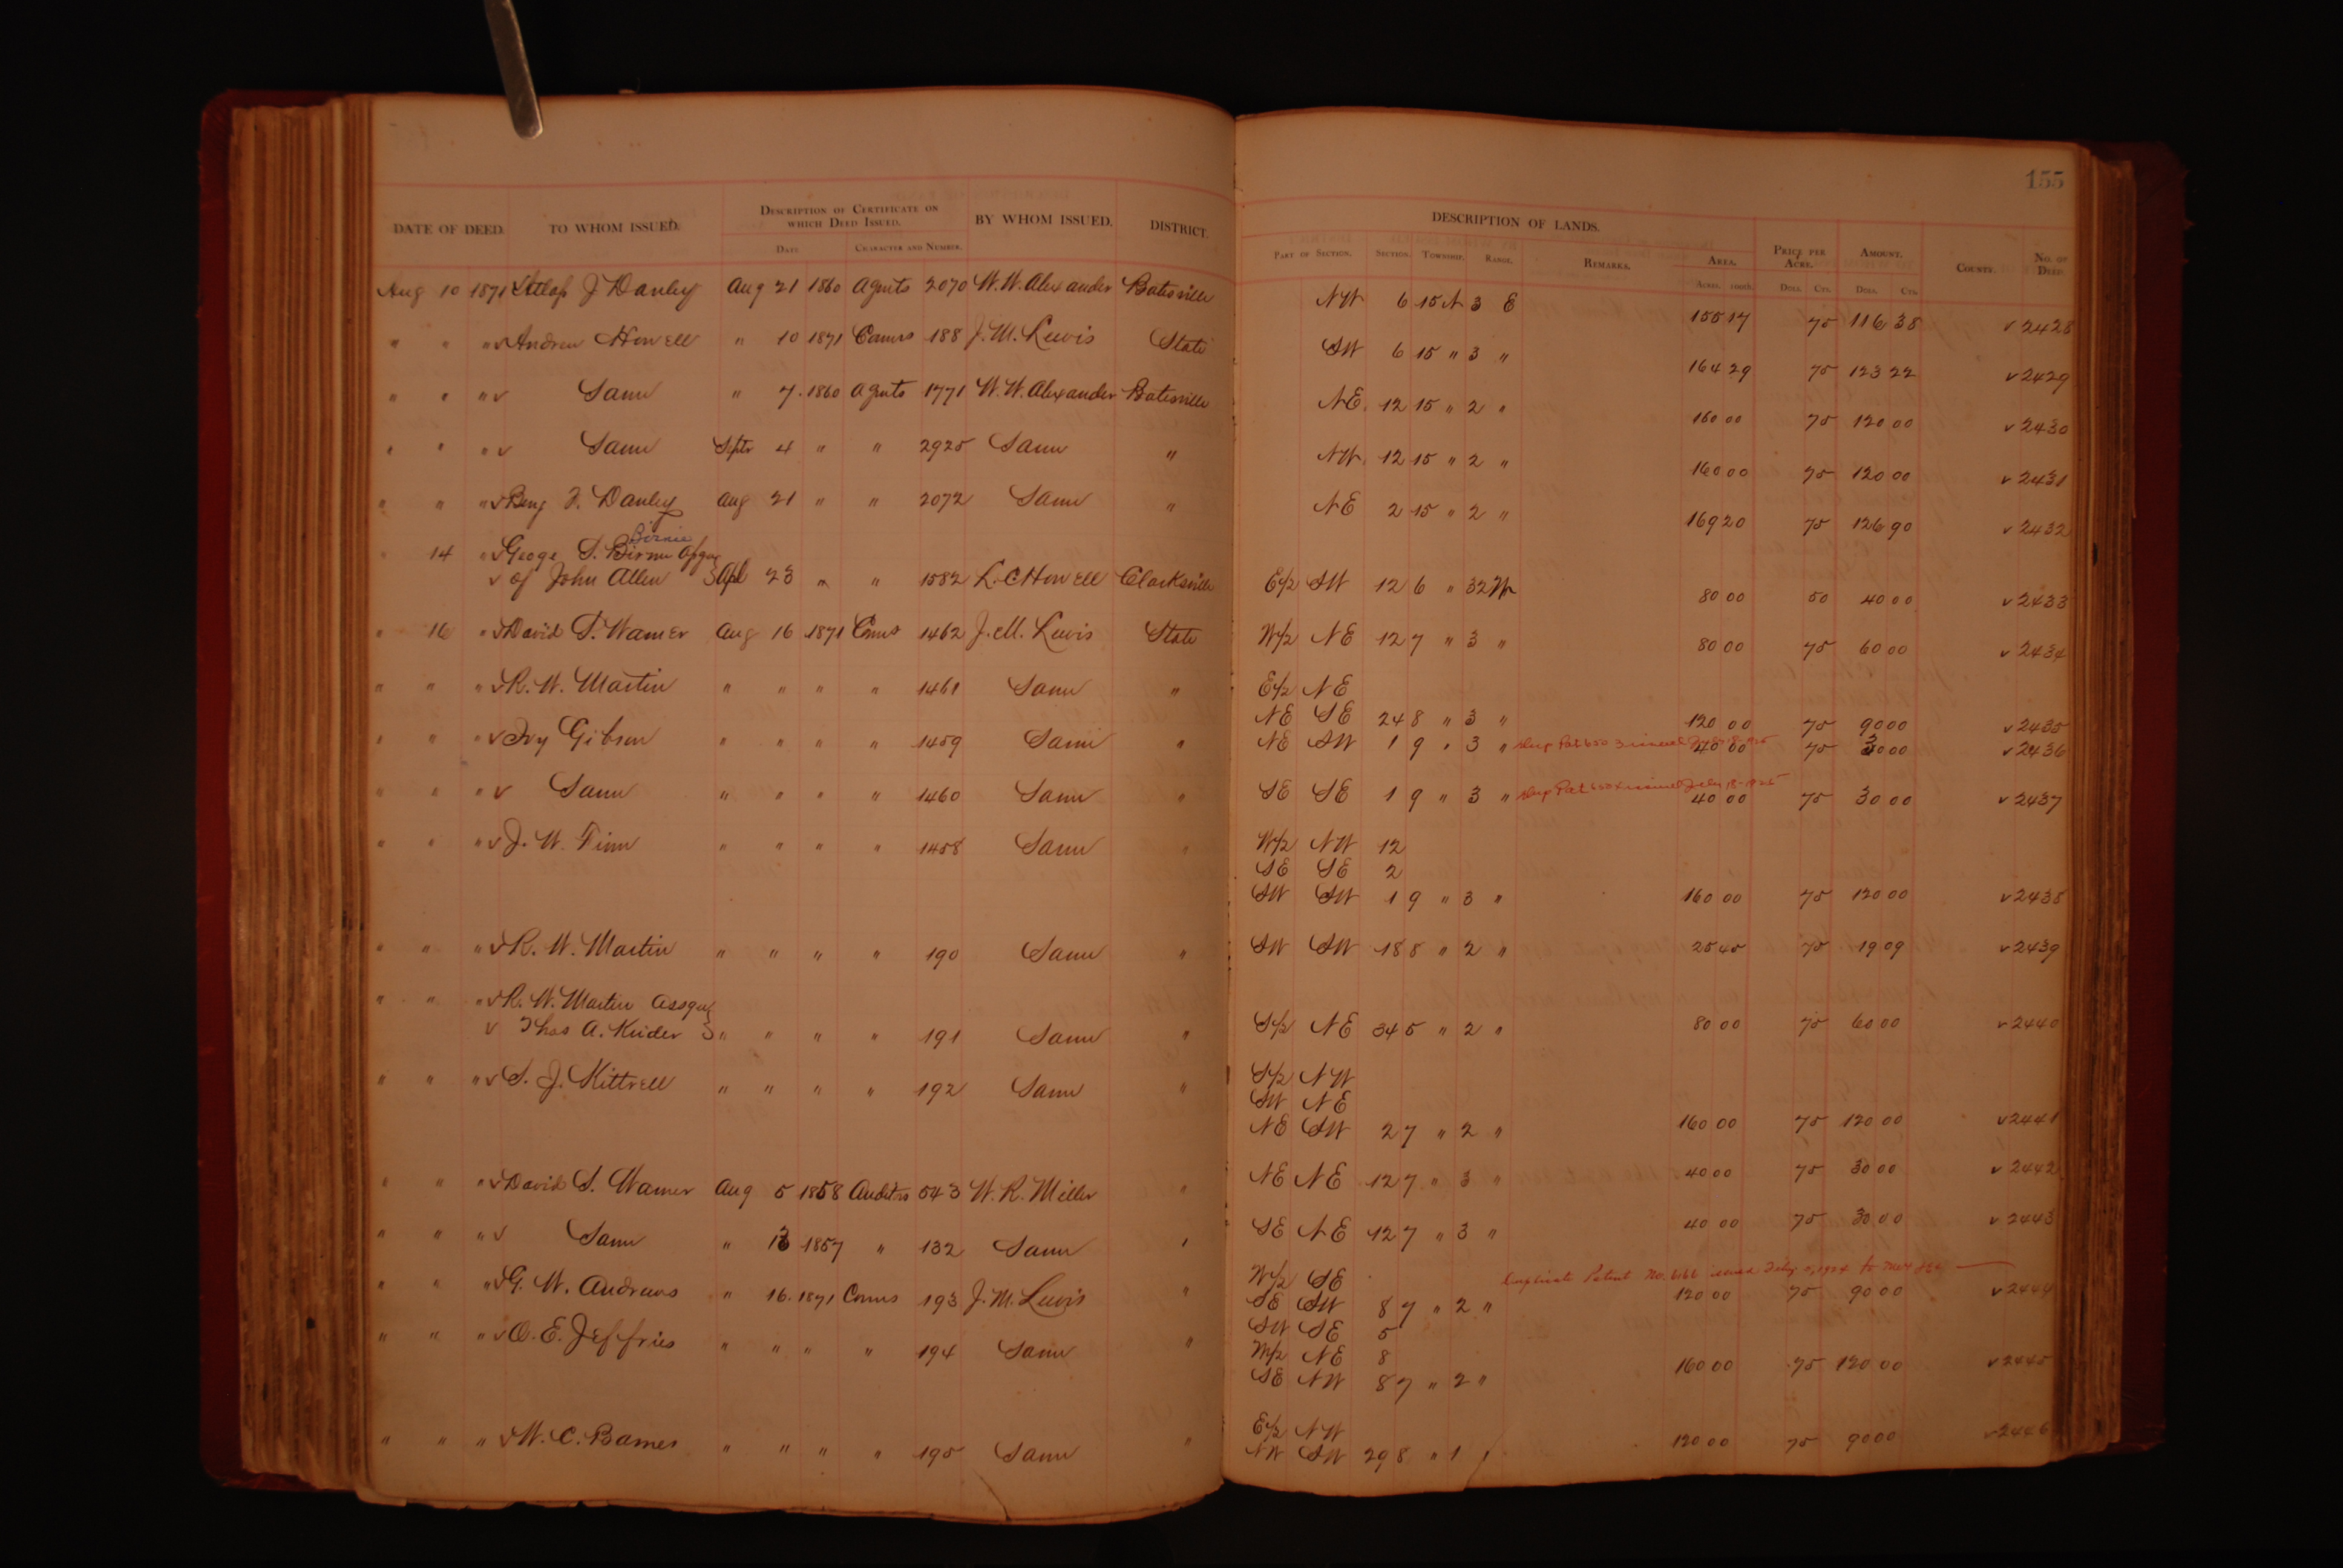 155
DATE OF DEED. TO WHOM ISSUED. DESCRIPTION OF CERTIFICATE ON WHICH DEED ISSUED. BY WHOM ISSUED. DISTRICT. DESCRIPTION OF LANDS. PRICE PER ACRE. AMOUNT. COUNTY. NO. OF DEED.
DATE. CHARACTER AND NUMBER. PART OF SECTION. SECTION. TOWNSHIP. RANGE. REMARKS. AREA.
ACRES. 100TH. DOLL. CTS. DOLL. CTS.
Aug 10 1871 J Danley Aug 21 1860 Agents 2070 W. W. Alexander Batesville NW 6 15 N 3 E 155 17 75 116 38 v 2428
" " " v Andrew Howell " 10 1871 Comrs 188 J. M. Lewis State SW 6 15 " 3 " 164 29 75 123 22 v 2429
" " " v Same " 7. 1860 Agents 1771 W. W. Alexander Batesville NE 12 15 " 2 " 160 00 75 120 00 v 2430
" " " v Same Septr 4 " " 2925 Same " NW 12 15 " 2 " 160 00 75 120 00 v 2431
" " " v Benj F. Danley Aug 21 " " 2072 Same " NE 2 15 " 2 " 169 20 75 126 90 v 2432
Birnie
" 14 " v George S. Birnie Assgee
v of John Allen } Apl 23 " " 1582 L. C Howell Clarksville E/2 SW 12 6 " 32 W 80 00 50 40 00 v 2433
" 16 " v David S. Warner Aug 16 1871 Comrs 1462 J. M. Lewis State W/2 NE 12 7 " 3 " 80 00 75 60 00 v 2434
" " " v R. W. Martin " " " " 1461 Same " E/2 NE
NE SE 24 8 " 3 " 120 00 75 90 00 v 2435
" " " v Ivy Gibson " " " " 1459 Same " NE SW 1 9 " 3 " Dup Pat 650 3 issued 40 00 75 30 00 v 2436
" " " v Same " " " " 1460 Same " SE SE 1 9 " 3 " Dup Pat issued July 18-1925 40 00 75 30 00 v 2437
" " " v J. W. Finn " " " " 1458 Same " W/2 NW 12
SE SE 2
SW SW 1 9 " 3 " 160 00 75 120 00 v 2438
" " " v R. W. Martin " " " " 190 Same " SW SW 18 8 " 2 " 25 45 75 19 09 v 2439
" " " v R. W. Martin Assgee
v Thos A. Kinder } " " " " 191 Same " S/2 NE 34 5 " 2 " 80 00 75 60 00 v 2440
" " " v S. J. Kittrell " " " " 192 Same " S/2 NW
SW NE
NE SW 2 7 " 2 " 160 00 75 120 00 v 2441
" " " v David S. Warner Aug 5 1858 Auditrs 543 W. R. Miller " NE NE 12 7 " 3 " 40 00 75 30 00 v 2442
" " " v Same " 13 1857 " 132 Same " SE NE 12 7 " 3 " 40 00 75 30 00 v 2443
" " " v G. W. Andrews " 16. 1871 Comrs 193 J. M. Lewis " W/2 SE Duplicate Patent No. 6166 issued
SE SW 8 7 " 2 " 120 00 75 90 00 v 2444
" " " v O. E. Jeffries " " " " 194 Same " SW SE 5
W/2 NE 8
SE NW 8 7 " 2 " 160 00 75 120 00 v 2445
" " " v W. C. Barnes " " " " 195 Same " E/2 NW
NW SW 29 8 " 1 120 00 75 90 00 v 2446